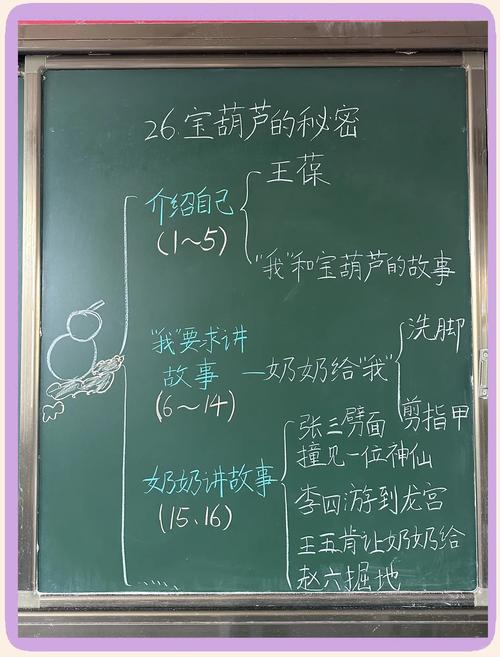 26.宝葫芦的秘密
介绍自己
(1~5)
王葆
"我"和宝葫芦的故事
"我"要求讲
故事
(6~14)
奶奶给"我"
洗脚
剪指甲
奶奶讲故事
(15、16)
张三劈面
撞见一位神仙
李四游到龙宫
王五肯让奶奶给
赵六掘地